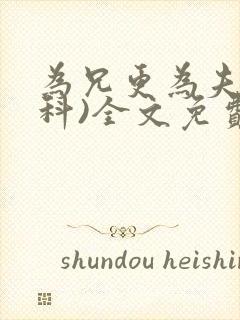 為兄更為夫
科)全文免費
shundou heishir